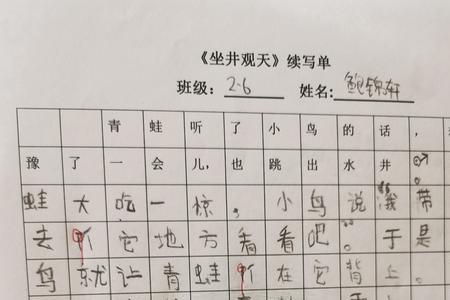 《坐井观天》续写单
班级：2-6 姓名：鲍锦轩
青蛙听了小鸟的话，
豫了一会儿，也跳出水井。
蛙大吃一惊，小鸟说："我带
去它地方看看吧。"于是
鸟就让青蛙在它背上。